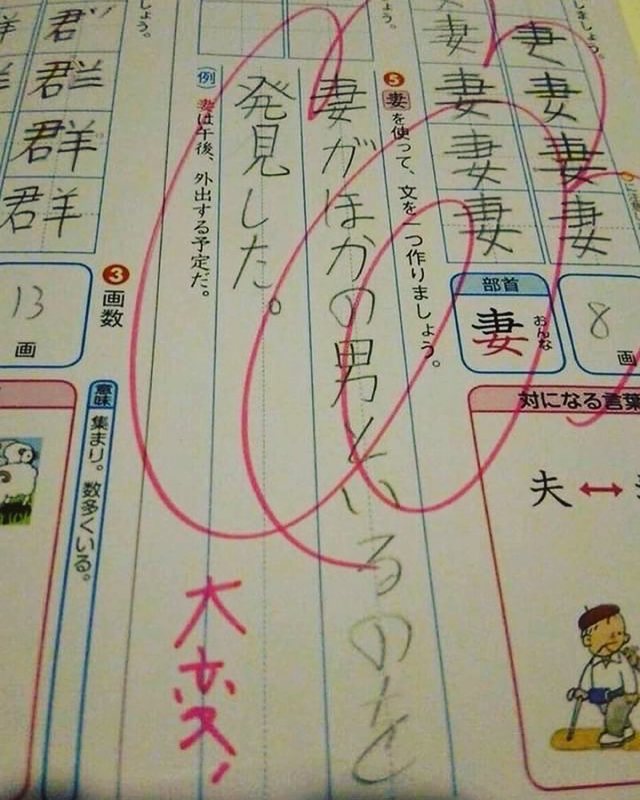 しましょう。
妻妻妻妻
妻妻妻妻
8画
部首
妻
おんな
対になる言葉
夫↔
う。
❺妻を使って、文を一つ作りましょう。
妻がほかの男といるのを
発見した。
例 妻は午後、外出する予定だ。
大変!
しょう。
❸画数
13画
群群群群
意味 集まり。数多くいる。